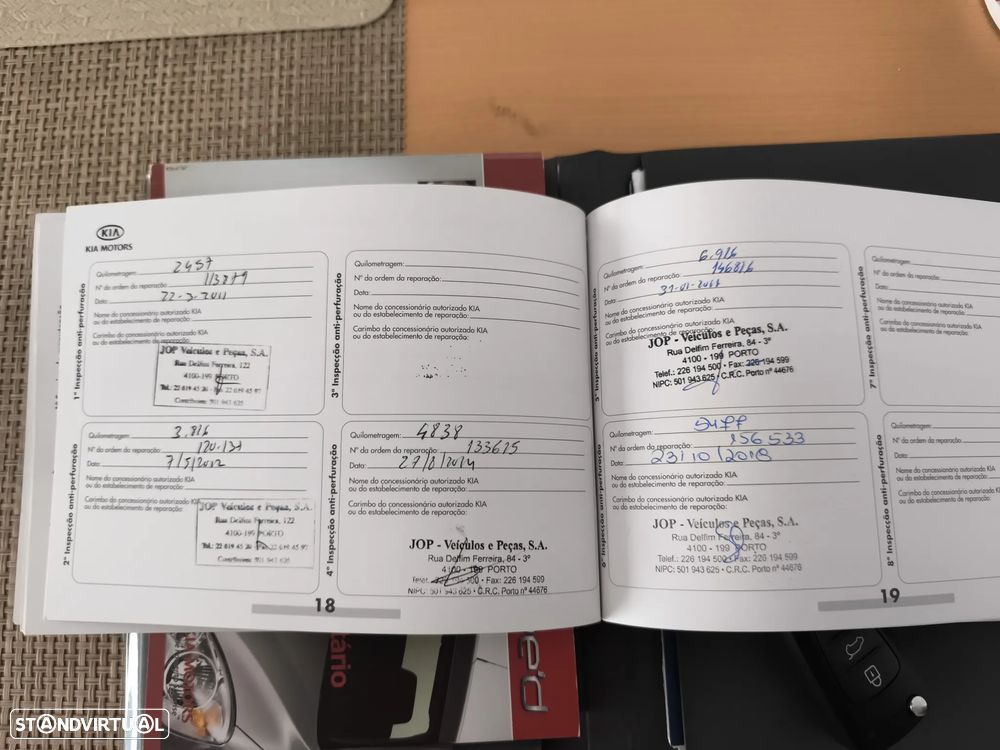 KIA
KIA MOTORS
1ª Inspecção anti-perfuração
Quilometragem: 2457
Nº da ordem da reparação: 113879
Data: 22-3-2011
Nome do concessionário autorizado KIA
ou do estabelecimento de reparação:
Carimbo do concessionário autorizado KIA
ou do estabelecimento de reparação:
JOP Veículos e Peças, S.A.
Rua Delfim Ferreira, 122
4100-199 PORTO
Contribuinte: 501 943 625
2ª Inspecção anti-perfuração
Quilometragem: 3.816
Nº da ordem da reparação: 120.137
Data: 7/5/2012
Nome do concessionário autorizado KIA
ou do estabelecimento de reparação:
Carimbo do concessionário autorizado KIA
ou do estabelecimento de reparação:
JOP Veículos e Peças, S.A.
Rua Delfim Ferreira, 122
4100-199 PORTO
3ª Inspecção anti-perfuração
Quilometragem:
Nº da ordem da reparação:
Data:
Nome do concessionário autorizado KIA
ou do estabelecimento de reparação:
Carimbo do concessionário autorizado KIA
ou do estabelecimento de reparação:
4ª Inspecção anti-perfuração
Quilometragem: 4838
Nº da ordem da reparação: 133615
Data: 27/8/2014
Nome do concessionário autorizado KIA
ou do estabelecimento de reparação:
Carimbo do concessionário autorizado KIA
ou do estabelecimento de reparação:
JOP - Veículos e Peças, S.A.
Rua Delfim Ferreira, 84 - 3º
4100 - 199 PORTO
Telef.: 226 194 500 • Fax: 226 194 599
NIPC: 501 943 625 • C.R.C. Porto nº 44676
18
5ª Inspecção anti-perfuração
Quilometragem: 6.916
Nº da ordem da reparação: 146816
Data: 31-01-2017
Nome do concessionário autorizado KIA
ou do estabelecimento de reparação:
Carimbo do concessionário autorizado KIA
ou do estabelecimento de reparação:
JOP - Veículos e Peças, S.A.
Rua Delfim Ferreira, 84 - 3º
4100 - 199 PORTO
Telef.: 226 194 500 • Fax: 226 194 599
NIPC: 501 943 625 • C.R.C. Porto nº 44676
Quilometragem:
Nº da ordem da reparação: 156533
Data: 23/10/2018
Nome do concessionário autorizado KIA
ou do estabelecimento de reparação:
Carimbo do concessionário autorizado KIA
ou do estabelecimento de reparação:
JOP - Veículos e Peças, S.A.
Rua Delfim Ferreira, 84 - 3º
4100 - 199 PORTO
Telef.: 226 194 500 • Fax: 226 194 599
NIPC: 501 943 625 • C.R.C. Porto nº 44676
7ª Inspecção anti-perfuração
Quilometragem:
Nº da ordem da
Data:
Nome do concessionário
ou do estabelecimento
Carimbo do concession
ou do estabelecimento
8ª Inspecção anti-perfuração
Quilometragem:
Nº da ordem da
Data:
Nome do concession
ou do estabelecimento
Carimbo do conces
ou do estabelecimen
19
tário
e'd
STANDVIRTUAL